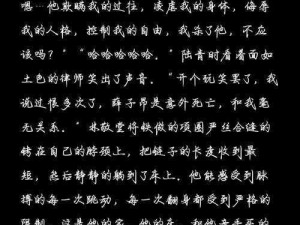 嗯…他欺瞒我的过往，凌虐我的身体，侮辱
我的人格，控制我的自由，我杀了他，不应
该吗？”“哈哈哈哈哈。”陆青时看着面如
土色的律师笑出了声音。“开个玩笑罢了，我
说过很多次了，薛子昂是意外死亡，和我毫
无关系。”林敬堂将铁做的项圈严丝合缝的
铐在自己的脖颈上，把链子的长度收到最
短，然后静静的躺到了床上。他能感受到脉
搏的每一次跳动，每一次翻身都受到严格的
限制。这是他的家，他的